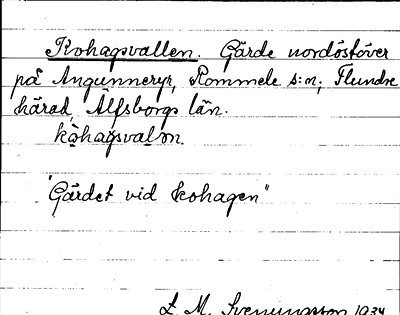 Kohagsvallen. Gärde nordöstöver
på Angunneryr, Rommele s:n, Flundre
härad, Älfsborgs län.
kòhagsvaln.
"Gärdet vid kohagen"
L. M. Svenungsson 1934